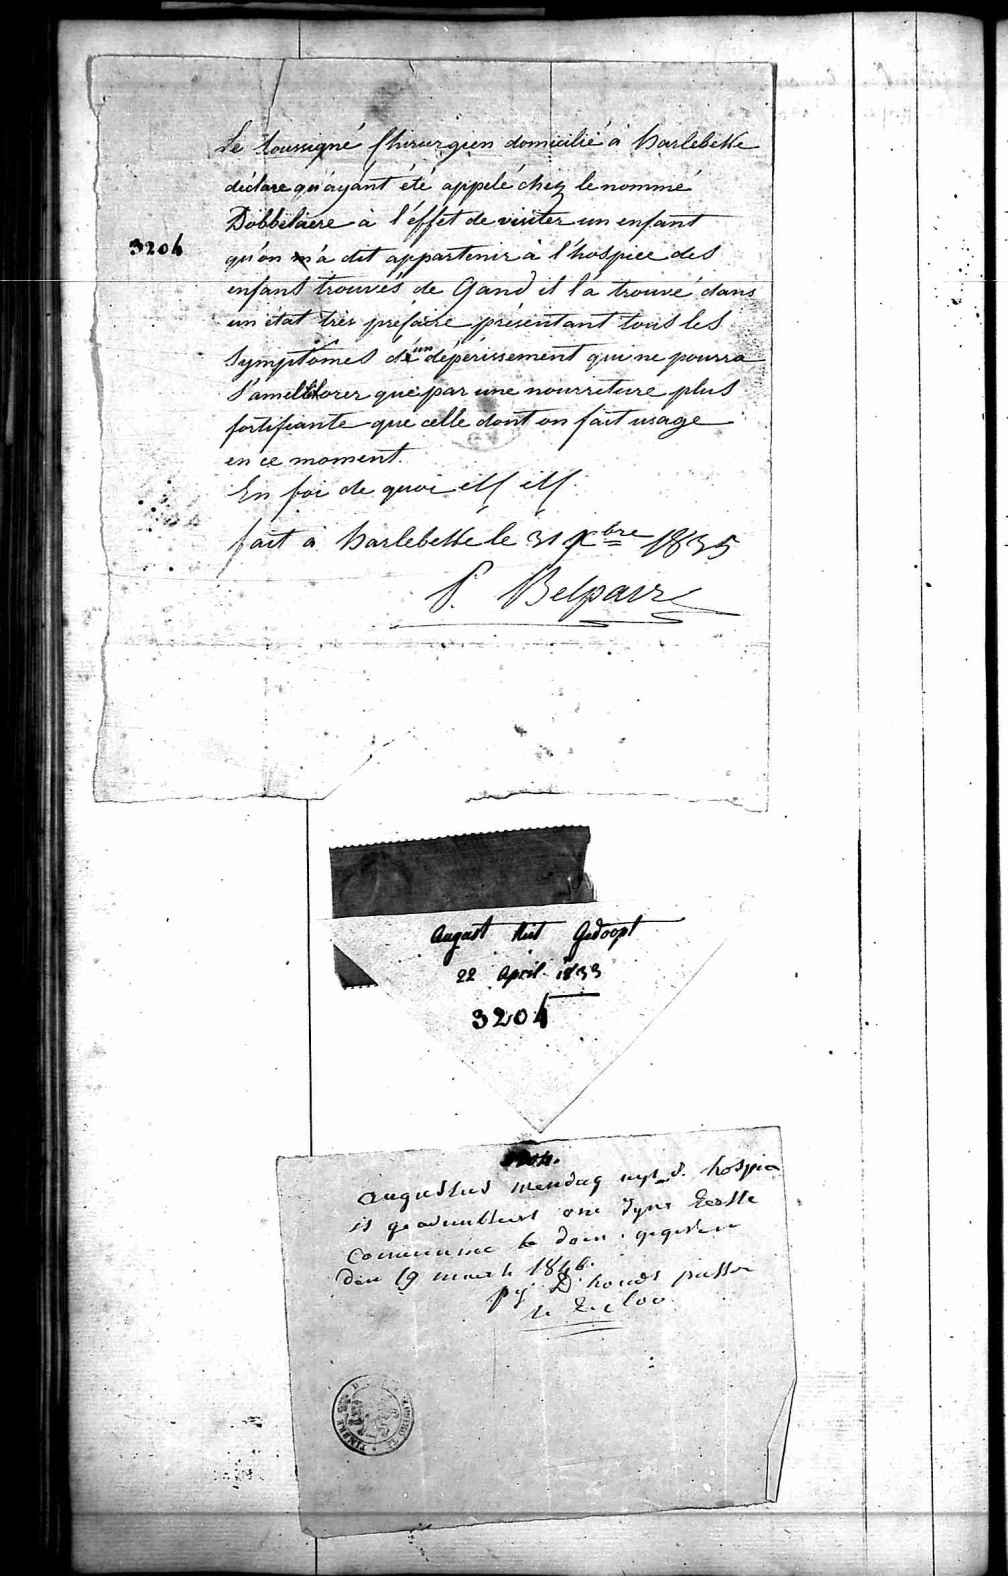 Le soussigné Chirurgien domicilié à harlebeke
déclare qu'ayant été appelé chez le nommé
Dobbelaere à l'éffet de visiter un enfant
3204
qu'on m'a dit appartenir à l'hospice des
enfans trouvés de Gand il l'a trouvé dans
un etat très présentant tous les
symptômes d'un dépérissement qui ne pourra
s'améliorer que par une nourriture plus
fortifiante que celle dont on fait usage
en ce moment.
En foi de quoi
fait à harlebeke le 31 Xbre 1835
P. Belpaire
August Niet Gedoopt
22 April 1833
3204
3204.
augustus mendag uyt d. hospice
is geadmitteert om zyne Eerste
Communie te doen. gegeven
den 19 1846.
D'hondt pastor
te Eecloo
TIMBRE